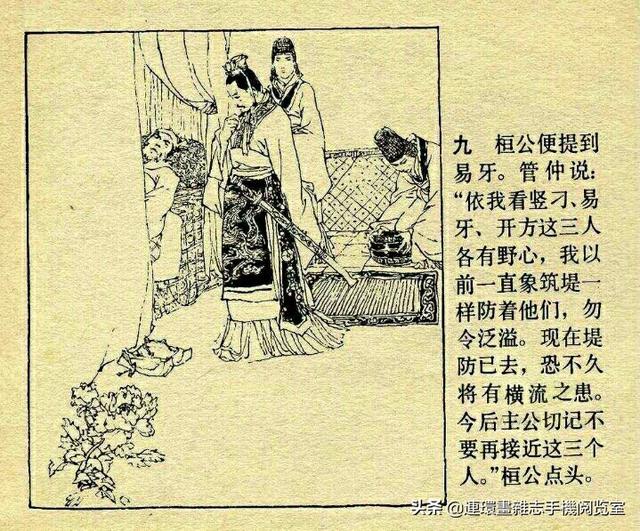 九 桓公便提到
易牙。管仲说:
“依我看竖刁、易
牙、开方这三人
各有野心,我以
前一直象筑堤一
样防着他们,勿
令泛溢。现在堤
防已去,恐不久
将有横流之患。
今后主公切记不
要再接近这三个
人。”桓公点头。
头条 @連環畫雜志手機阅览室